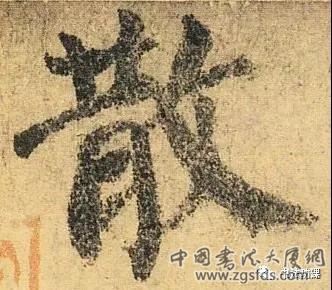 散
中国书法大厦网
www.zgsfds.com